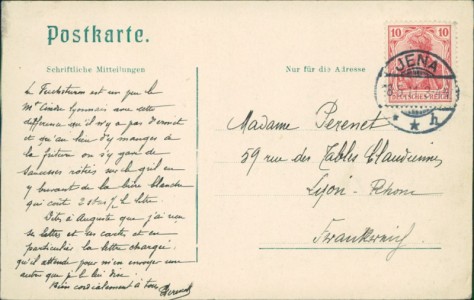 Postkarte.
Schriftliche Mitteilungen
Nur für die Adresse
10 10
DEUTSCHES REICH
JENA
Le Fuchsturm est un peu le
Mt Cindre Lyonnais avec cette
différence qu'il n'y a pas d'ermite
et qu'au lieu d'y manger de
la friture on s'y gave de
saucisses rôties
y buvant de la bière blanche
qui coûte le litre.
Dites à Auguste que j'ai reçu
sa lettre et ses cartes et en
particulier la lettre chargée
qu'il attende pour m'en envoyer une
autre que je le lui dise.
Bien cordialement à tous Perenet
Madame Perenet
59 rue des Tables Claudiennes
Lyon - Rhone
Frankreich